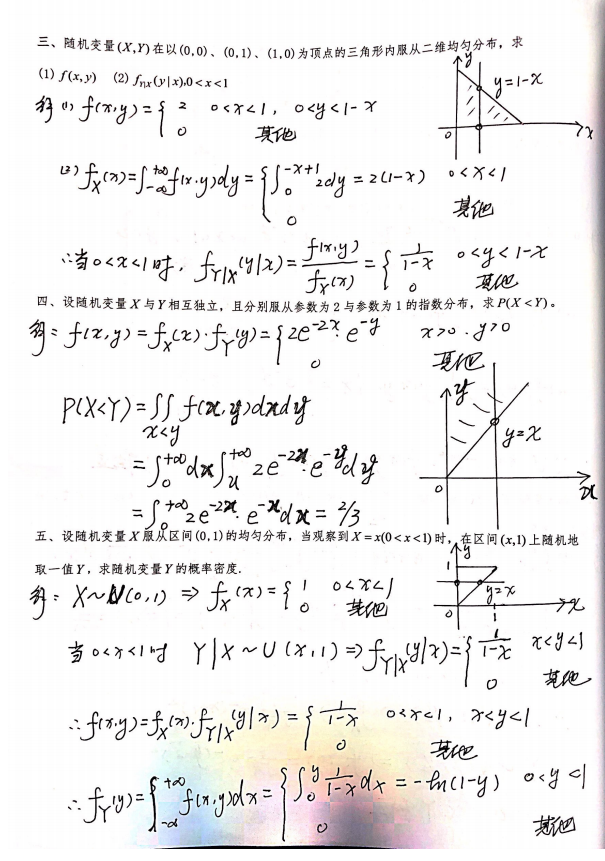 三、随机变量(X,Y)在以(0,0)、(0,1)、(1,0)为顶点的三角形内服从二维均匀分布，求
(1) f(x,y)  (2) f_{Y|X}(y|x),0<x<1
y
y=1-x
0
x
解 (1) f(x,y) = { 2  0<x<1, 0<y<1-x
0  其他
(2) f_X(x)=∫_{-∞}^{+∞}f(x,y)dy = { ∫_0^{-x+1}2dy = 2(1-x)  0<x<1
0  其他
∴当0<x<1时, f_{Y|X}(y|x) = f(x,y)/f_X(x) = { 1/(1-x)  0<y<1-x
0  其他
四、设随机变量X与Y相互独立，且分别服从参数为2与参数为1的指数分布，求P(X<Y)。
解: f(x,y) = f_X(x)·f_Y(y) = { 2e^{-2x}·e^{-y}  x>0, y>0
0  其他
P(X<Y) = ∬_{x<y} f(x,y)dxdy
= ∫_0^{+∞}dx∫_x^{+∞} 2e^{-2x}·e^{-y}dy
= ∫_0^{+∞}2e^{-2x}·e^{-x}dx = 2/3
y
y=x
0
x
五、设随机变量X服从区间(0,1)的均匀分布，当观察到X=x(0<x<1)时，在区间(x,1)上随机地
取一值Y，求随机变量Y的概率密度.
y
1
y=x
0
1
x
解: X~U(0,1) ⇒ f_X(x) = { 1  0<x<1
0  其他
当0<x<1时 Y|X~U(x,1) ⇒ f_{Y|X}(y|x) = { 1/(1-x)  x<y<1
0  其他
∴f(x,y)=f_X(x)·f_{Y|X}(y|x) = { 1/(1-x)  0<x<1, x<y<1
0  其他
∴f_Y(y) = ∫_{-∞}^{+∞}f(x,y)dx = { ∫_0^y 1/(1-x) dx = -ln(1-y)  0<y<1
0  其他